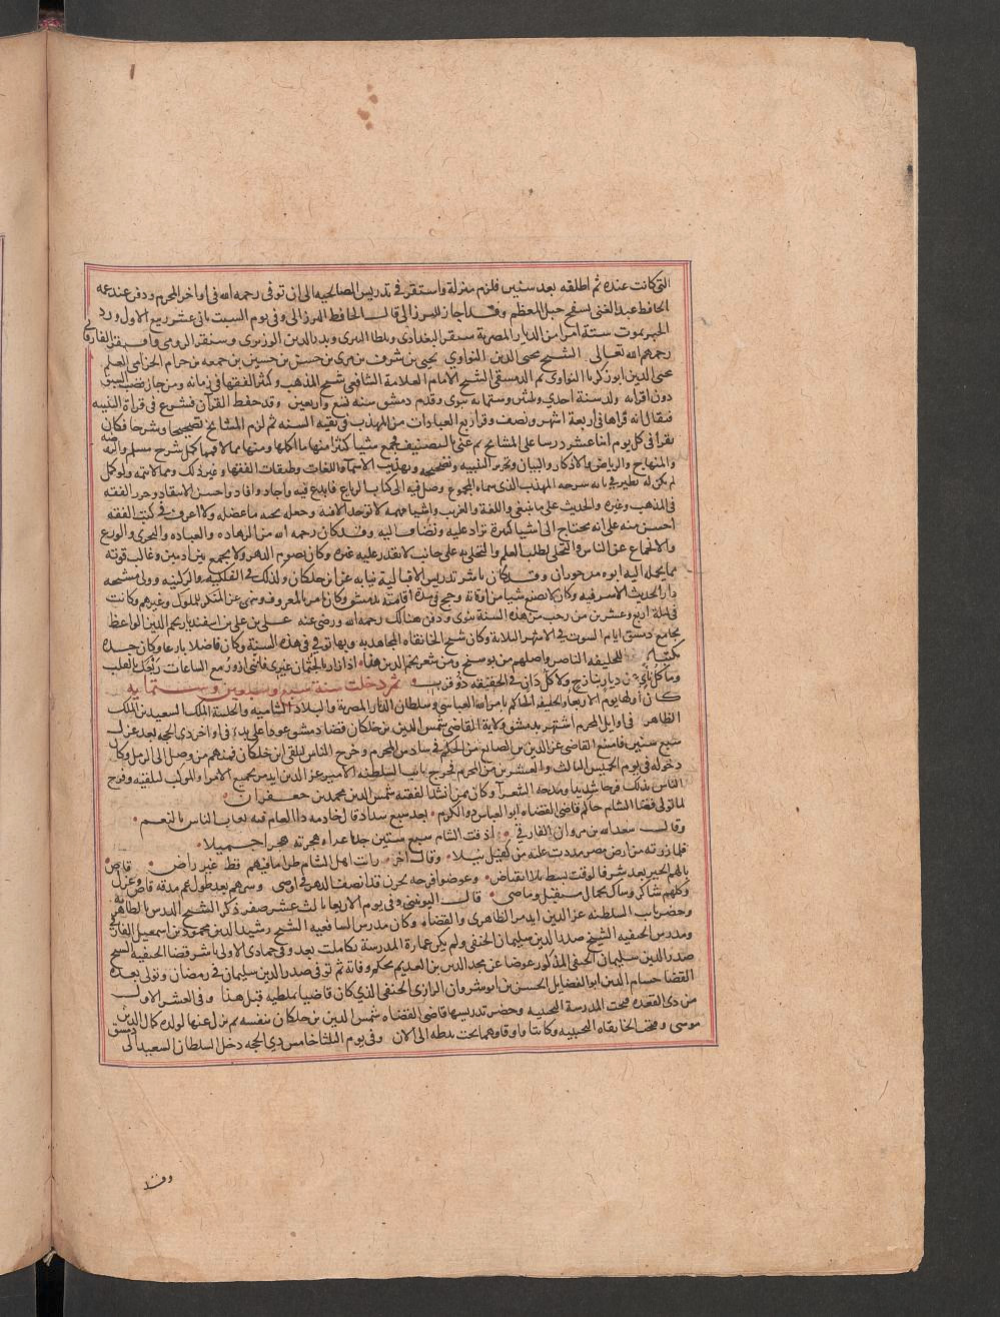 التى كانت عنده ثم اطلقه بعد سنين فلزم منزله واستقر فى تدريس الصالحيه الى ان توفى رحمه الله فى اواخر المحرم ودفن عند عمه
الحافظ عبد الغنى بسفح جبل المعظم وقد اجاز للبرزالى قال الحافظ البرزالى وفى يوم السبت ثانى عشر ربيع الاول ورد
الخبر بموت ستة امرا من الديار المصرية سنقر البغدادى وبدر الدين الوزيرى وسنقر الرومى واق سنقر الفارقانى
رحمهم الله تعالى الشيخ محيى الدين النواوى يحيى بن شرف بن مرى بن حسن بن حسين بن جمعه بن حزام الحزامى العلم
محيى الدين ابو زكريا النواوى ثم الدمشقى الشيخ الامام العلامة الشافعى شيخ المذهب وكبير الفقها فى زمانه ومن حاز قصب السبق
دون اقرانه ولد سنة احدى وثلثين وستمايه بنوى وقدم دمشق سنه تسع واربعين وقد حفظ القران فشرع فى قراة التنبيه
فيقال انه قراها فى اربعة اشهر ونصف وقرا ربع العبادات من المهذب فى بقيه السنه ثم لزم المشايخ تصحيحا وشرحا فكان
يقرا فى كل يوم اثنا عشر درسا على المشايخ ثم عنى بالتصنيف فجمع شيا كثيرا منها ما اكمله ومنها ما لا فمما كمل شرح مسلم والروضه
والمنهاج والرياض والاذكار والتبيان وتحرير التنبيه وتصحيحه وتهذيب الاسما واللغات وطبقات الفقها وغير ذلك ومما لم يتمه ولو كمل
لم يكن له نظير فى بابه شرحه المهذب الذى سماه المجموع وصل فيه الى كتاب الربا ع فابدع فيه واجاد وافاد واحسن الانتقاد وحرر الفقه
فى المذهب وغيره والحديث على ما ينبغى واللغة والغريب واشيا مهمه لا توجد الا فيه وجعله نخبه ما عضله ولا اعرف فى كتب الفقه
احسن منه على انه محتاج الى اشيا كثيرة تزاد عليه وتضاف اليه وقد كان رحمه الله من الزهاده والعباده والتحرى والورع
والانجماع عن الناس والتخلى بطلب العلم والتحلى به على جانب لا يقدر عليه غيره وكان يصوم الدهر ولا يجمع بين ادمين وغالب قوته
مما يحمله اليه ابوه من حوران وقد كان باشر تدريس الاقباليه نيابه عن ابن خلكان وكذلك فى الفلكيه والركنيه وولى مشيخه
دار الحديث الاشرفيه وكان لا يضيع شيا من اوقاته وحج فى مدة اقامته بدمشق وكان يامر بالمعروف وينهى عن المنكر للملوك وغيرهم وكانت
فى ليلة اربع وعشرين من رجب من هذه السنة بنوى ودفن هنالك رحمه الله ورضى عنه علـى بن على بن اسفنديار نجم الدين الواعظ
بجامع دمشق ايام السبوت فى الاشهر الثلاثه وكان شيخ الخانقاه المجاهديه وبها توفى فى هذه السنة وكان فاضلا بارعا وكان جـده
للخليفه الناصر واصلهم من بوسنج ومن شعر نجم الدين هذا اذا زار بالجثمان غيرى فاننى ازور مع الساعات ربعك بالقلب
وما كل ناءٍ عن ديار بنازح ولا كل دان فى الحقيقه ذو قرب ثم دخلت سنة سبع وسبعين وستمايه
كان اولها يوم الاربعا والخليفه الحاكم بامر الله العباسى وسلطان الديار المصرية والبلاد الشاميه والحلبية الملك السعيد بن الملك
الظاهر فى اوايل المحرم اشتهر بدمشق ولاية القاضى شمس الدين بن خلكان قضا دمشق عودا على بدء فى اواخر ذى الحجه بعد عزله
سبع سنين فامتنع القاضى عز الدين بن الصايغ من الحكم فى سادس المحرم وخرج الناس لتلقى ابن خلكان فمنهم من وصل الى الرمله وكان
دخوله فى يوم الخميس الثالث والعشرين من المحرم فخرج نايب السلطنه الامير عز الدين ايدمر بجميع الامرا والمواكب لتلقيه وفرح
الناس بذلك فرحا شديدا ومدحه الشعرا وكان ممن انشد الفقيه شمس الدين محمد بن جعفران
لما تولى قضا الشام حاكم قاضى القضاه ابو العباس ذو الكرم بعد سبع شداد قال خادمه ذا العام فيه يغاث الناس بالنعم
وقال سعد الله بن مروان الفارقى اذقت الشام سبع سنين جدبا غداة هجرته هجرا جميلا
فلما زرته من ارض مصر مددت عليه من كفيك نيلا وقال اخر رايت اهل الشام طرا ما فيهم قط غير راض
نالهم الخير بعد شر فالوقت بسط بلا انقباض وعوضوا فرحه بحزن قد انصف الدهر فى التقاضى وسرهم بعد طول غم بدقه قاض وعزل قاض
وكلهم شاكر وشاك بحال مستقبل وماضى قال اليونينى وفى يوم الاربعا ثالث عشر صفر ذكر الشيخ الدرس بالظاهريه
وحضر نايب السلطنه عز الدين ايدمر الظاهرى والقضاه وكان مدرس الشافعيه الشيخ رشيد الدين محمود بن اسمعيل الفارقى
ومدرس الحنفيه الشيخ صدر الدين سليمان الحنفى ولم يكن عمارة المدرسة تكاملت بعد وفى جمادى الاولى باشر قضا الحنفيه الشيخ
صدر الدين سليمان الحنفى المذكور عوضا عن مجد الدين بن العديم بحكم وفاته ثم توفى صدر الدين سليمان فى رمضان وتولى بعده
القضا حسام الدين ابو الفضايل الحسن بن انوشروان الرازى الحنفى الذى كان قاضيا بملطيه قبل هذا وفى العشر الاول
من ذى القعده فتحت المدرسة النجيبيه وحضر تدريسها قاضى القضاه شمس الدين بن خلكان بنفسه ثم نزل عنها لولده كمال الدين
موسى وفتحت الخانقاه النجيبيه وكانتا واوقافهما تحت الحوطه الى الان وفى يوم الثلثا خامس ذى الحجه دخل السلطان السعيد الى دمشق
وقد